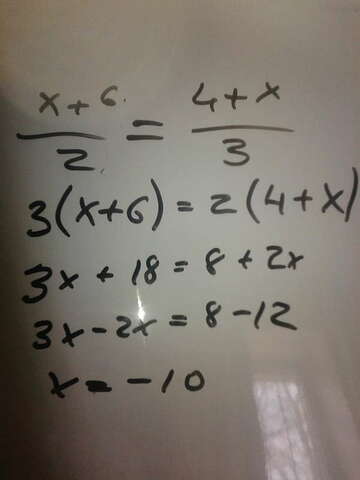 x+6/2 = 4+x/3
3(x+6) = 2(4+x)
3x + 18 = 8 + 2x
3x - 2x = 8 - 12
x = -10